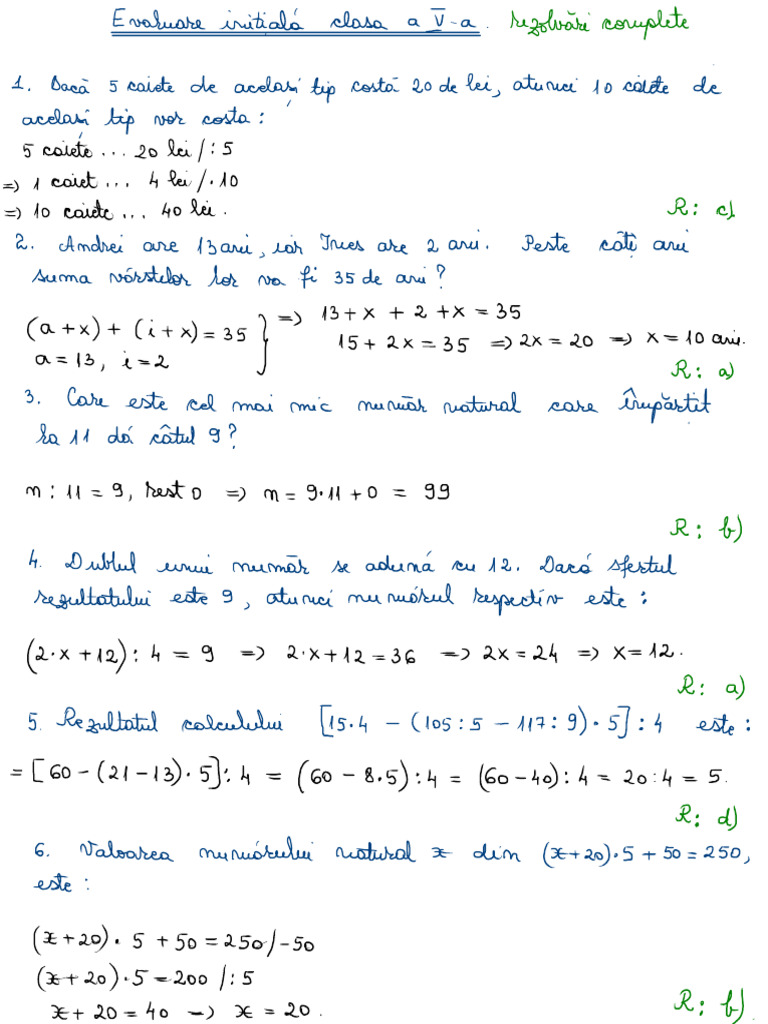 Evaluare inițială clasa a V-a. rezolvări complete
1. Dacă 5 caiete de același tip costă 20 de lei, atunci 10 caiete de
același tip vor costa:
5 caiete ... 20 lei /:5
=> 1 caiet ... 4 lei /·10
=> 10 caiete ... 40 lei.
R: c)
2. Andrei are 13 ani, iar Ines are 2 ani. Peste câți ani
suma vârstelor lor va fi 35 de ani?
(a+x) + (i+x) = 35
a=13, i=2
} => 13+x + 2 +x = 35
15+2x = 35 => 2x = 20 => x = 10 ani.
R: a)
3. Care este cel mai mic număr natural care împărțit
la 11 dă câtul 9?
n : 11 = 9, rest 0 => n = 9·11+0 = 99
R: b)
4. Dublul unui număr se adună cu 12. Dacă sfertul
rezultatului este 9, atunci numărul respectiv este:
(2·x+12) : 4 = 9 => 2·x+12 = 36 => 2x = 24 => x = 12.
R: a)
5. Rezultatul calculului [15·4 - (105:5 - 117:9)·5] : 4 este:
= [60-(21-13)·5] : 4 = (60-8·5) : 4 = (60-40) : 4 = 20:4 = 5.
R: d)
6. Valoarea numărului natural x din (x+20)·5+50=250,
este:
(x+20)·5+50=250/-50
(x+20)·5=200 /:5
x+20=40 => x=20.
R: b)